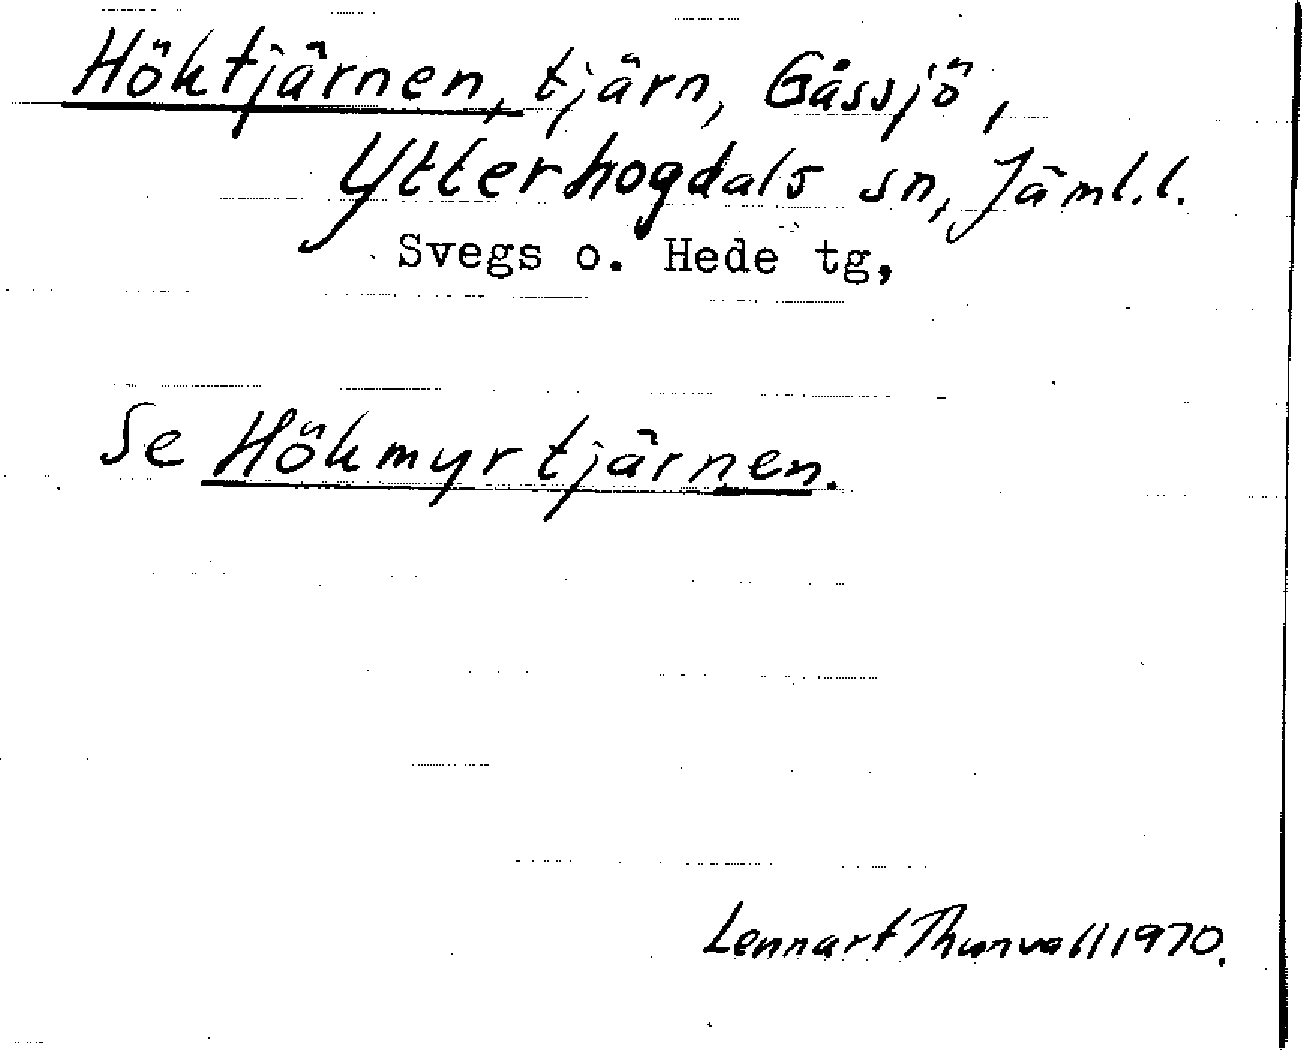 Höktjärnen, tjärn, Gåssjö,
Ytterhogdals sn, Jämt.l.
Svegs o. Hede tg,
Se Hökmyrtjärnen.
Lennart Thunvall 1970.